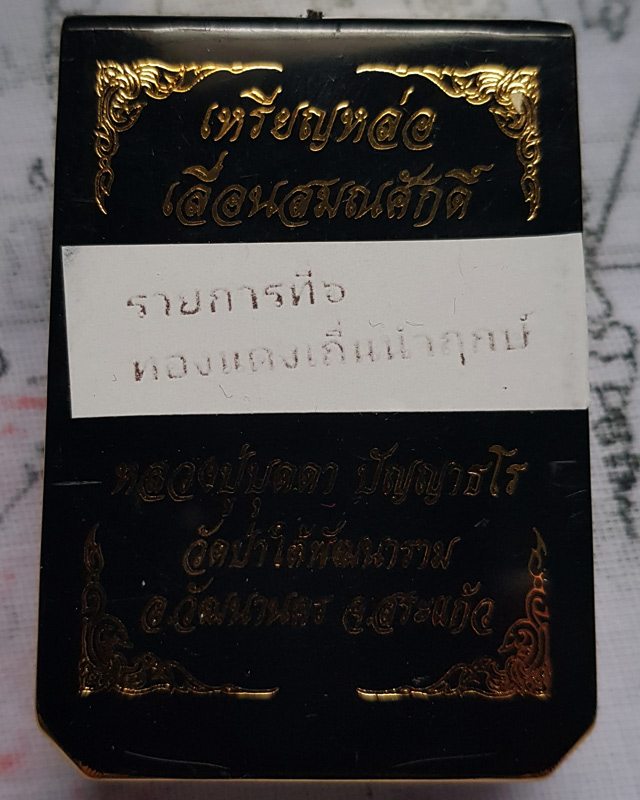 เหรียญหล่อ
เลื่อนสมณศักดิ์
รายการที่๖
ทองแดงเถื่อน้ำฤกษ์
หลวงปู่บุดดา ปัญญาธโร
วัดป่าใต้พัฒนาราม
อ.วัฒนานคร จ.สระแก้ว